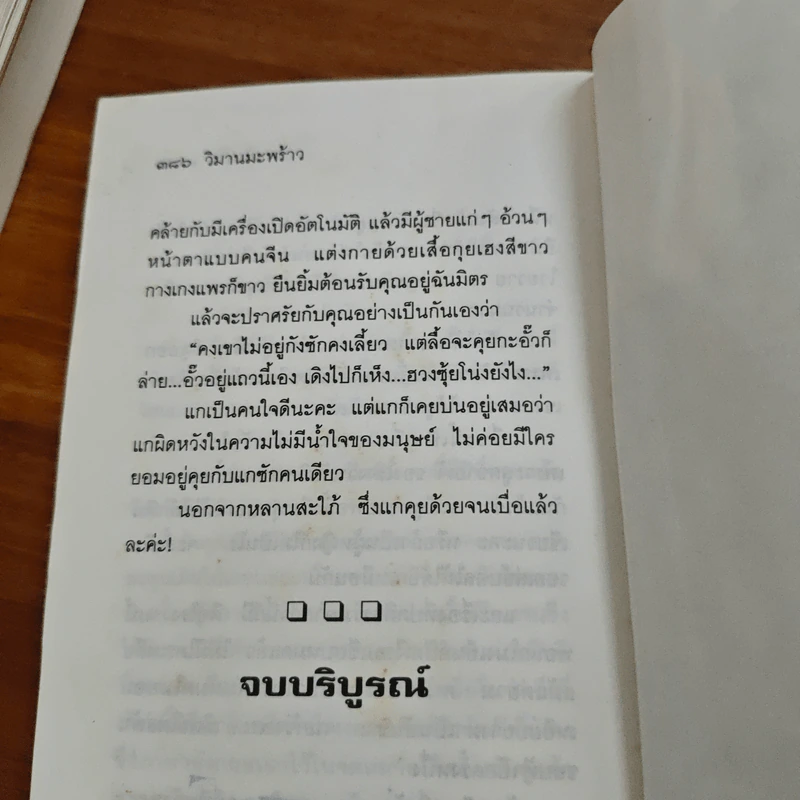 ๓๘๖ วิมานมะพร้าว
คล้ายกับมีเครื่องเปิดอัตโนมัติ แล้วมีผู้ชายแก่ๆ อ้วนๆ
หน้าตาแบบคนจีน แต่งกายด้วยเสื้อกุยเฮงสีขาว
กางเกงแพรก็ขาว ยืนยิ้มต้อนรับคุณอยู่ฉันมิตร
แล้วจะปราศรัยกับคุณอย่างเป็นกันเองว่า
“คงเขาไม่อยู่กังซักคงเลี้ยว แต่ลื้อจะคุยกะอั๊วก็
ล่าย...อั๊วอยู่แถวนี้เอง เดิงไปก็เห็ง...ฮวงซุ้ยโน่งยังไง...”
แกเป็นคนใจดีนะคะ แต่แกก็เคยบ่นอยู่เสมอว่า
แกผิดหวังในความไม่มีน้ำใจของมนุษย์ ไม่ค่อยมีใคร
ยอมอยู่คุยกับแกซักคนเดียว
นอกจากหลานสะใภ้ ซึ่งแกคุยด้วยจนเบื่อแล้ว
ละค่ะ!
จบบริบูรณ์